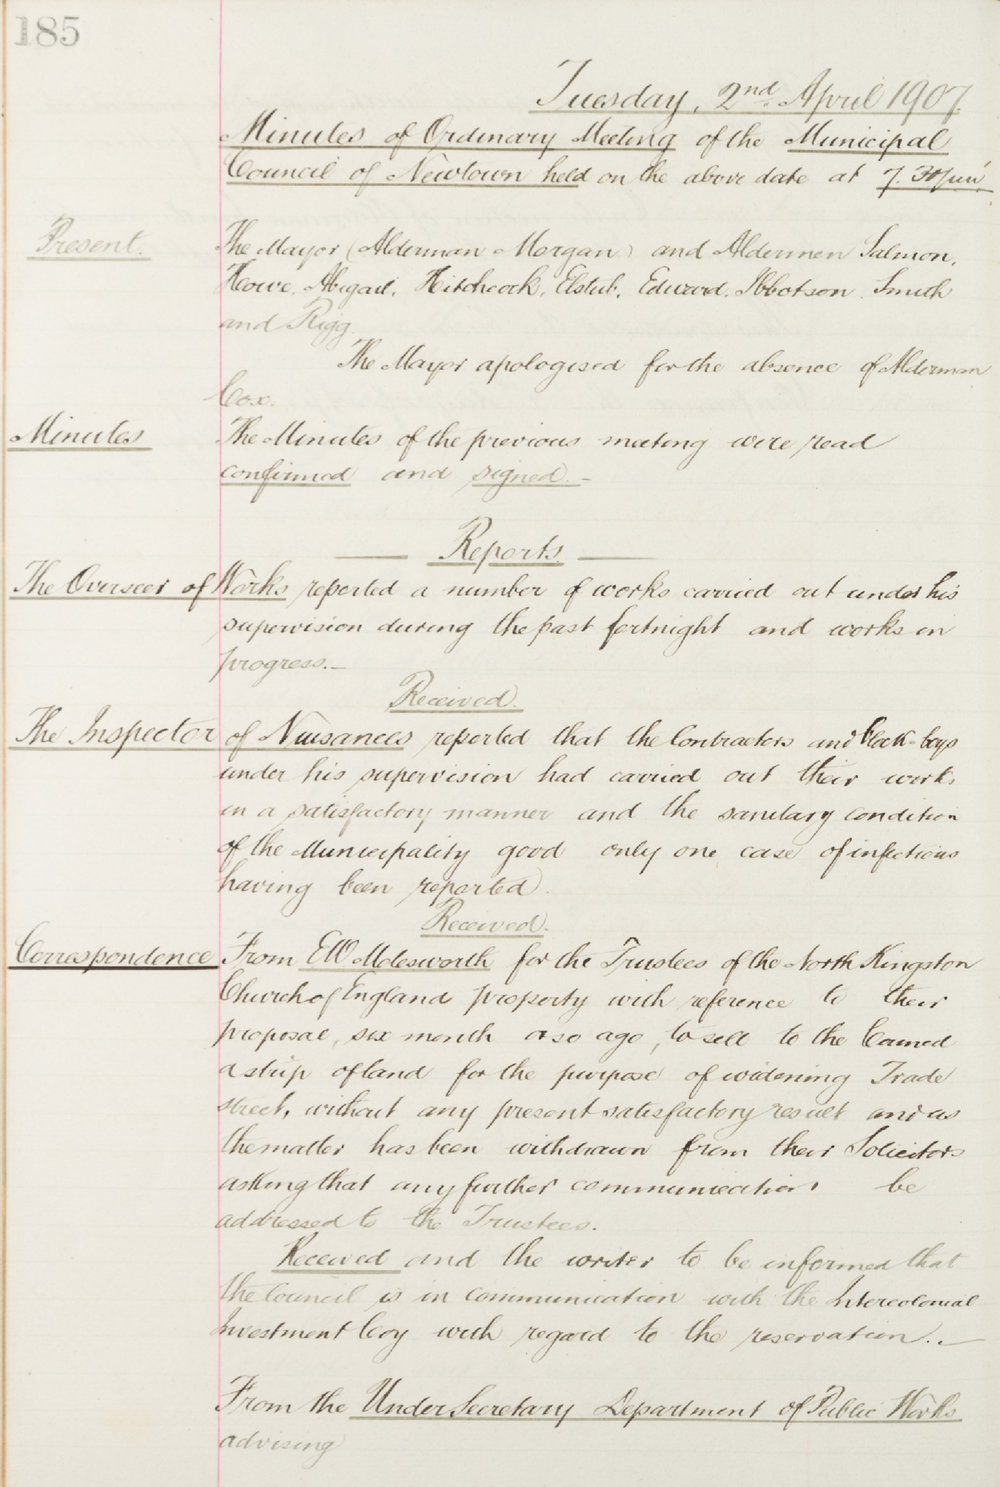 185
Tuesday, 2nd April 1907
Minutes of Ordinary Meeting of the Municipal
Council of Newtown held on the above date at 7.30 pm
Present. The Mayor (Alderman Morgan) and Aldermen Salmon,
Howe, Abigail, Hitchcock, Elstub, Edward, Ibbotson, Smith
and Rigg.
The Mayor apologised for the absence of Alderman
Cox.
Minutes The Minutes of the previous meeting were read
confirmed and signed. —
— Reports —
The Overseer of Works reported a number of works carried out under his
supervision during the past fortnight and works in
progress. —
Received.
The Inspector of Nuisances reported that the Contractors and block-boys
under his supervision had carried out their works
in a satisfactory manner and the sanitary condition
of the Municipality good only one case of infectious
having been reported.
Received.
Correspondence From EW Molesworth for the Trustees of the North Kingston
Church of England property with reference to their
proposal, six month or so ago, to sell to the Council
a strip of land for the purpose of widening Trade
street, without any present satisfactory result and as
the matter has been withdrawn from their Solicitors
asking that any further communication be
addressed to the Trustees.
Received and the writer to be informed that
the Council is in communication with the Intercolonial
Investment Coy with regard to the reservation. —
From the Under Secretary Department of Public Works
advising